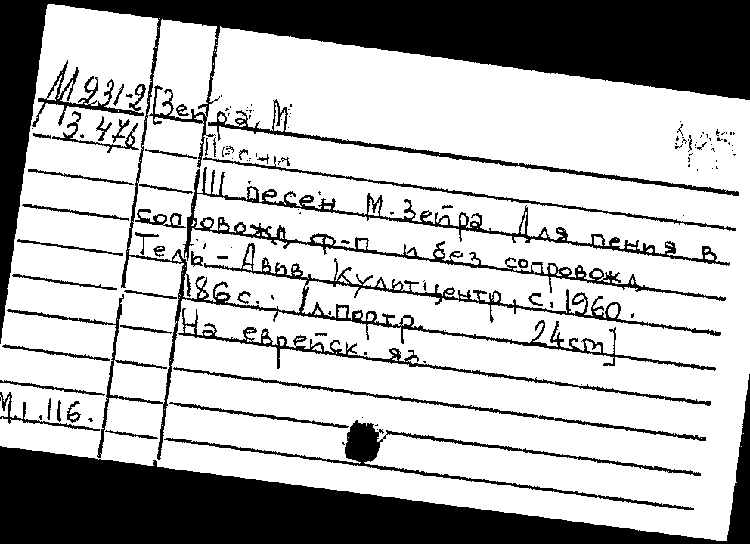 М 231-2
3.476
[Зейра, М
Песни
111 песен М. Зейра. Для пения в
сопровожд. ф-п и без сопровожд.
Тель-Авив, Культцентр, с. 1960.
186 с.; 1 л. портр. 24 cm]
На еврейск. яз.
М.1.116.